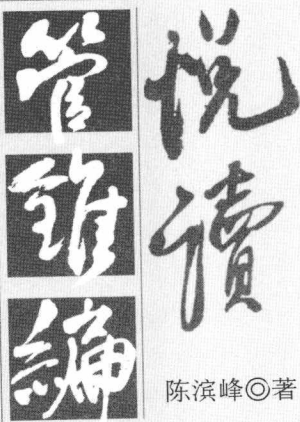 悦讀
管錐編
陈滨峰◎著